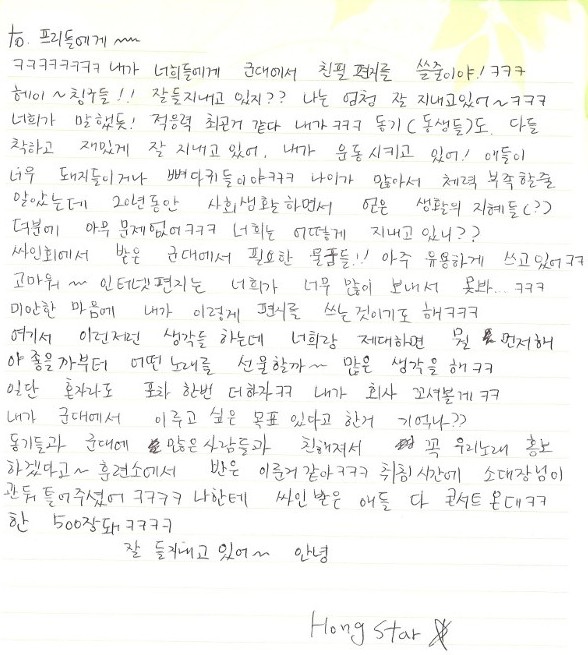 to. 프리들에게 ~~
ㅋㅋㅋㅋㅋㅋㅋㅋ 내가 너희들에게 군대에서 친필 편지를 쓸줄이야! ㅋㅋㅋ
헤이~ 칭구들!! 잘들지내고 있지?? 나는 엄청 잘 지내고있어~ㅋㅋㅋ
너희가 말했듯! 적응력 최곤거 같다 내가ㅋㅋㅋ 동기(동생들)도 다들
착하고 재밌게 잘 지내고 있어. 내가 운동시키고 있어! 애들이
너무 돼지들이거나 뼈다귀들이야ㅋㅋㅋ 나이가 많아서 체력 부족할줄
알았는데 20년동안 사회생활하면서 얻은 생활의 지혜들(?)
덕분에 아무 문제없어ㅋㅋㅋ 너희는 어떻게 지내고 있니??
싸인회에서 받은 군대에서 필요한 물품들!! 아주 유용하게 쓰고있어ㅋㅋ
고마워~ 인터넷편지는 너희가 너무 많이 보내서 못봐... ㅋㅋㅋ
미안한 마음에 내가 이렇게 편지를 쓰는것이기도 해ㅋㅋㅋ
여기서 이런저런 생각들 하는데 너희랑 제대하면 뭘 먼저해
야좋을까부터 어떤노래를 선물할까~ 많은 생각을 해ㅋㅋ
일단 혼자라도 포차 한번 더하자ㅋㅋ 내가 회사 꼬셔볼게ㅋㅋ
내가 군대에서 이루고 싶은 목표 있다고 한거 기억나??
동기들과 군대에 많은사람들과 친해져서 꼭 우리노래 홍보
하겠다고~ 훈련소에서 반은 이룬거 같아ㅋㅋㅋ 취침시간에 소대장님이
관둬 틀어주셨어 ㅋㅋㅋㅋ 나한테 싸인받은 애들 다 콘서트 온대ㅋㅋ
한 500장돼ㅋㅋㅋㅋ
잘 들지내고 있어~ 안녕
Hong Star